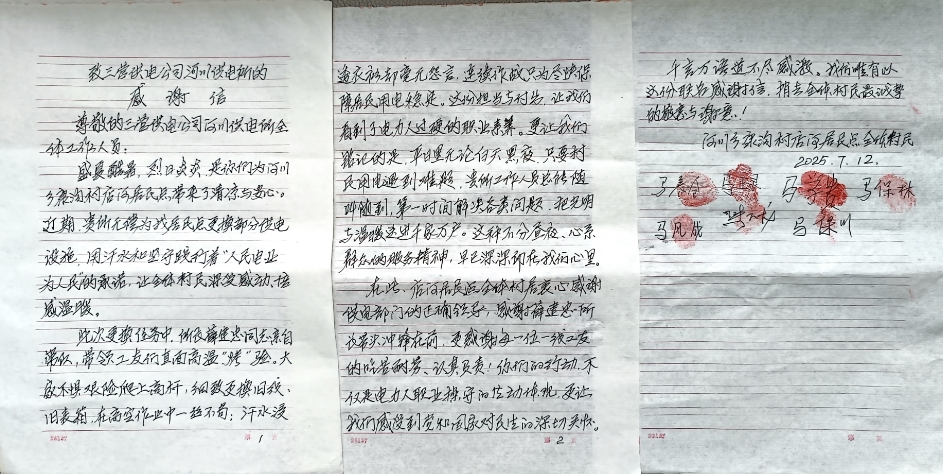 致三营供电公司河川供电所的
感谢信
尊敬的三营供电公司河川供电所全
体工作人员:
盛夏酷暑,烈日炎炎,是你们为河川
乡寨沟村店河居民点带来了清凉与安心。
近期,贵所无偿为我居民点更换部分供电
设施,用汗水和坚守践行着“人民电业
为人民”的承诺,让全体村民深受感动,倍
感温暖。
此次更换任务中,所长薛建忠同志亲自
带队,带领工友们直面高温“烤”验。大
家不惧艰险爬上高杆,细致更换旧线、
旧表箱,在高空作业中一丝不苟;汗水浸
透衣衫却毫无怨言,连续作战只为尽快保
障居民用电稳定。这份担当与付出,让我们
看到了电力人过硬的职业素养。更让我们
铭记的是,平日里无论白天黑夜,只要村
民用电遇到难题,贵所工作人员总能随
叫随到,第一时间解决各类问题,把光明
与温暖送进千家万户。这种不分昼夜、心系
群众的服务精神,早已深深印在我们心里。
在此,店河居民点全体村居衷心感谢
供电部门的正确领导,感谢薛建忠所
长带头冲锋在前,更感谢每一位一线工友
的吃苦耐劳、认真负责!你们的行动,不
仅是电力人职业操守的生动体现,更让
我们感受到党和国家对民生的深切关怀。
千言万语道不尽感激。我们唯有以
这份联名感谢信,捎去全体村民最诚挚
的敬意与谢意!
河川乡寨沟村店河居民点全体村民
2025.7.12.
马保林
马凤成
第 1 页
第 2 页
第 页